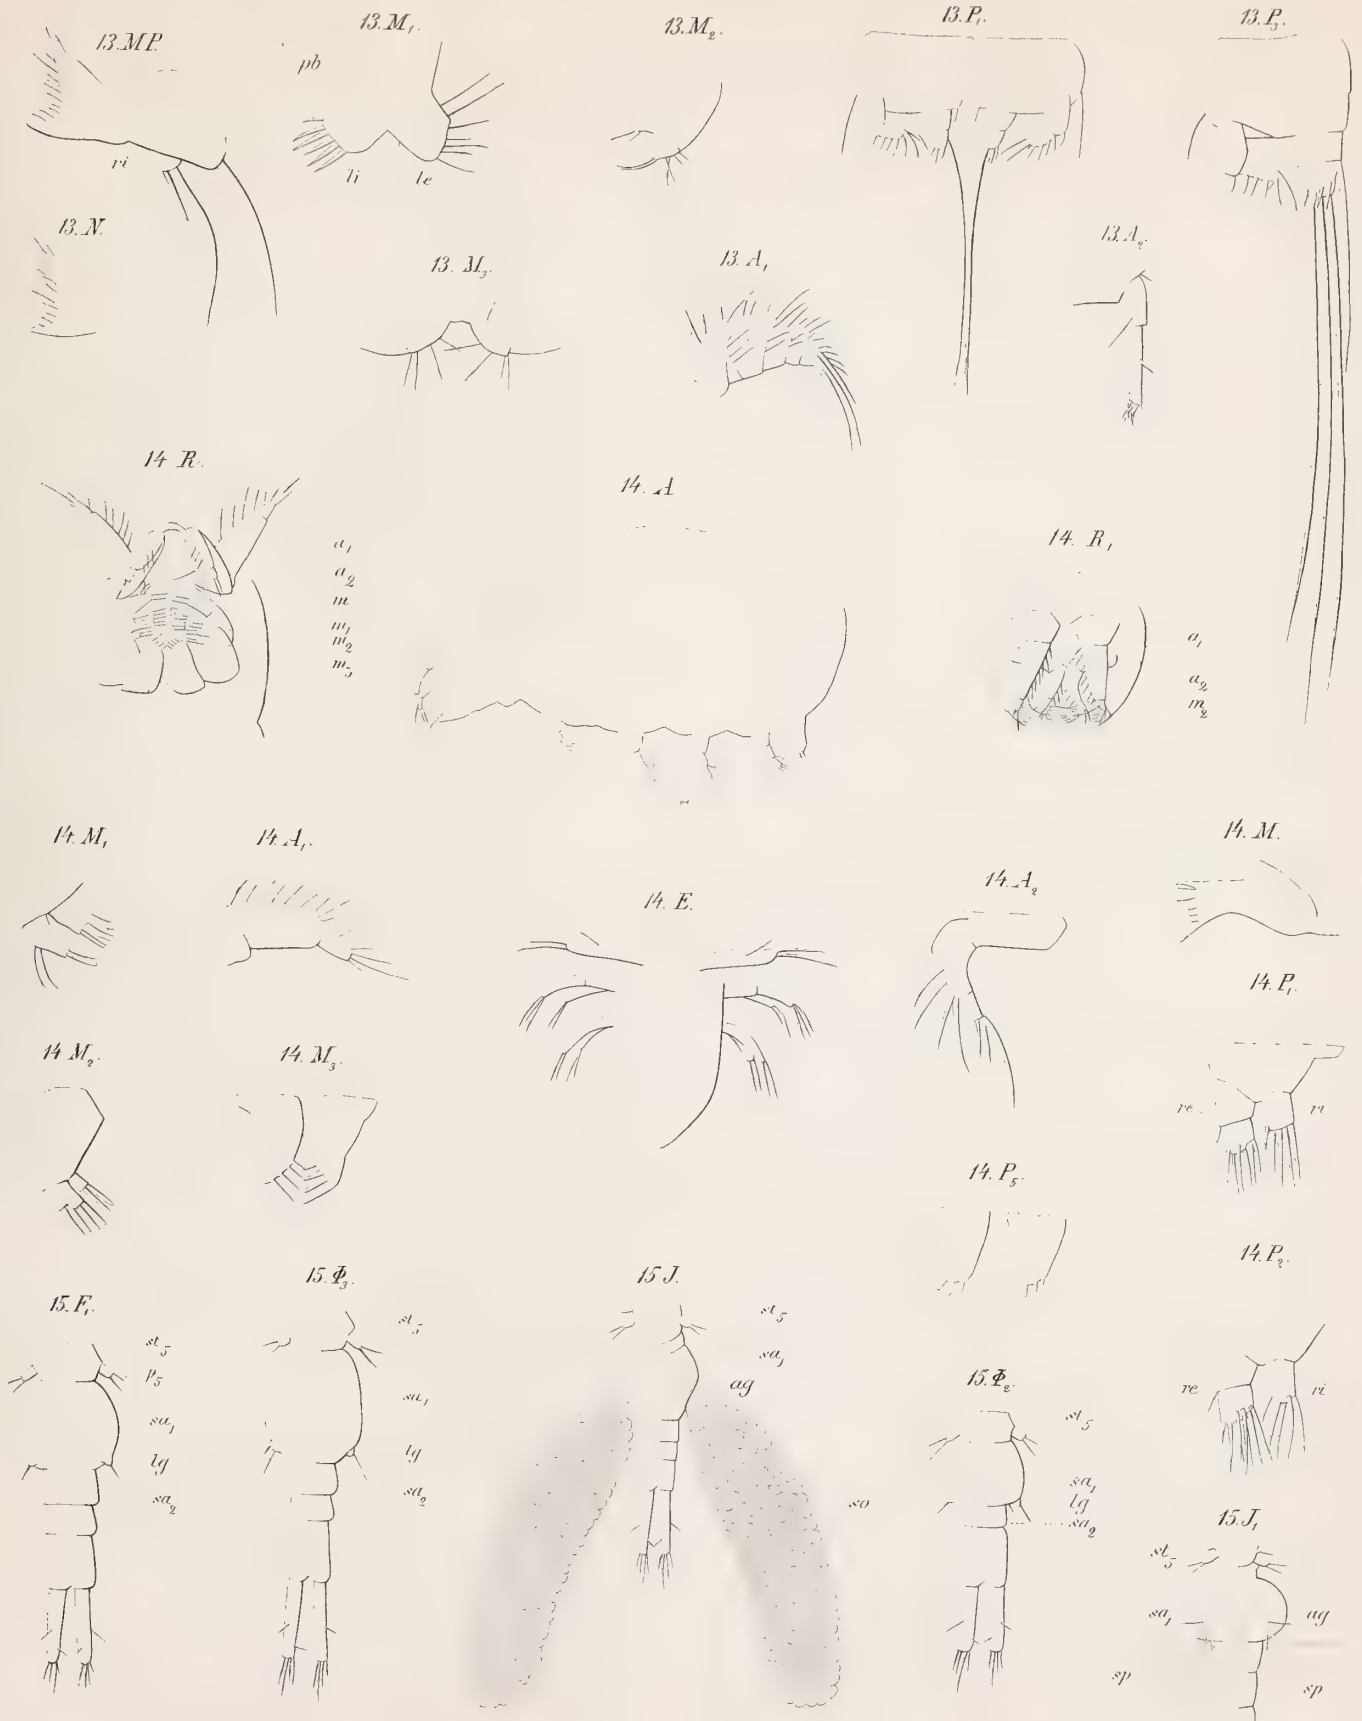 13. MP.
13. M₁.
13. M₂.
13. P₁.
13. P₃.
pb
ri
li
le
13. N.
13. M₃.
13. A₁
13. A₂.
14 R.
14. A
14. R₁
a₁
a₂
m
m₁
m₂
m₃
a₁
a₂
m₂
14. M₁
14. A₁.
14. E.
14. A₂
14. M.
14. P₁.
re.
ri
14 M₂.
14. M₃.
14. P₅.
14. P₂.
re
ri
15. F₁.
st₅
p₅
sa₁
lg
sa₂
15. Φ₃.
st₅
sa₁
lg
sa₂
15 J.
st₅
sa₁
ag
so
15. Φ₂.
st₅
sa₁
lg
sa₂
sp
15. J₁
st₅
sa₁
ag
sp